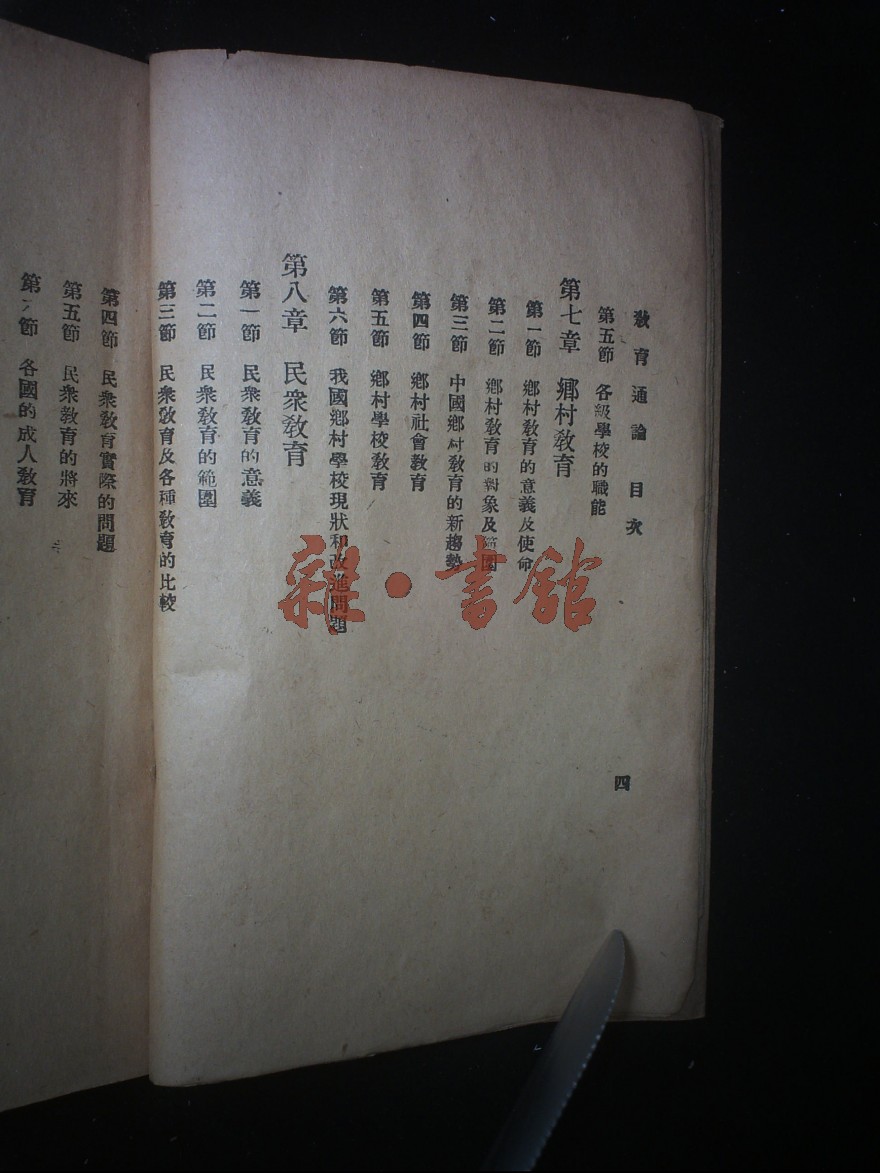 教育通論 目次
第五節 各級學校的職能
第七章 鄉村教育
第一節 鄉村教育的意義及使命
第二節 鄉村教育的對象及範圍
第三節 中國鄉村教育的新趨勢
第四節 鄉村社會教育
第五節 鄉村學校教育
第六節 我國鄉村學校現狀和改進問題
第八章 民衆教育
第一節 民衆教育的意義
第二節 民衆教育的範圍
第三節 民衆教育及各種教育的比較
四
第四節 民衆教育實際的問題
第五節 民衆教育的將來
第六節 各國的成人教育
雜·書館